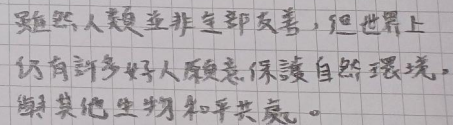 雖然人類並非全部友善，但世界上
仍有許多好人願意保護自然環境。
與其他生物和平共處。